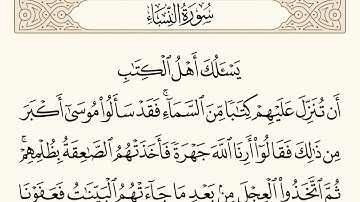 سُورَةُ النِّسَاءِ
يَسْـَٔلُكَ أَهْلُ ٱلْكِتَـٰبِ
أَن تُنَزِّلَ عَلَيْهِمْ كِتَـٰبًا مِّنَ ٱلسَّمَآءِ ۚ فَقَدْ سَأَلُوا۟ مُوسَىٰٓ أَكْبَرَ
مِن ذَٰلِكَ فَقَالُوٓا۟ أَرِنَا ٱللَّهَ جَهْرَةً فَأَخَذَتْهُمُ ٱلصَّـٰعِقَةُ بِظُلْمِهِمْ ۚ
ثُمَّ ٱتَّخَذُوا۟ ٱلْعِجْلَ مِنۢ بَعْدِ مَا جَآءَتْهُمُ ٱلْبَيِّنَـٰتُ فَعَفَوْنَا